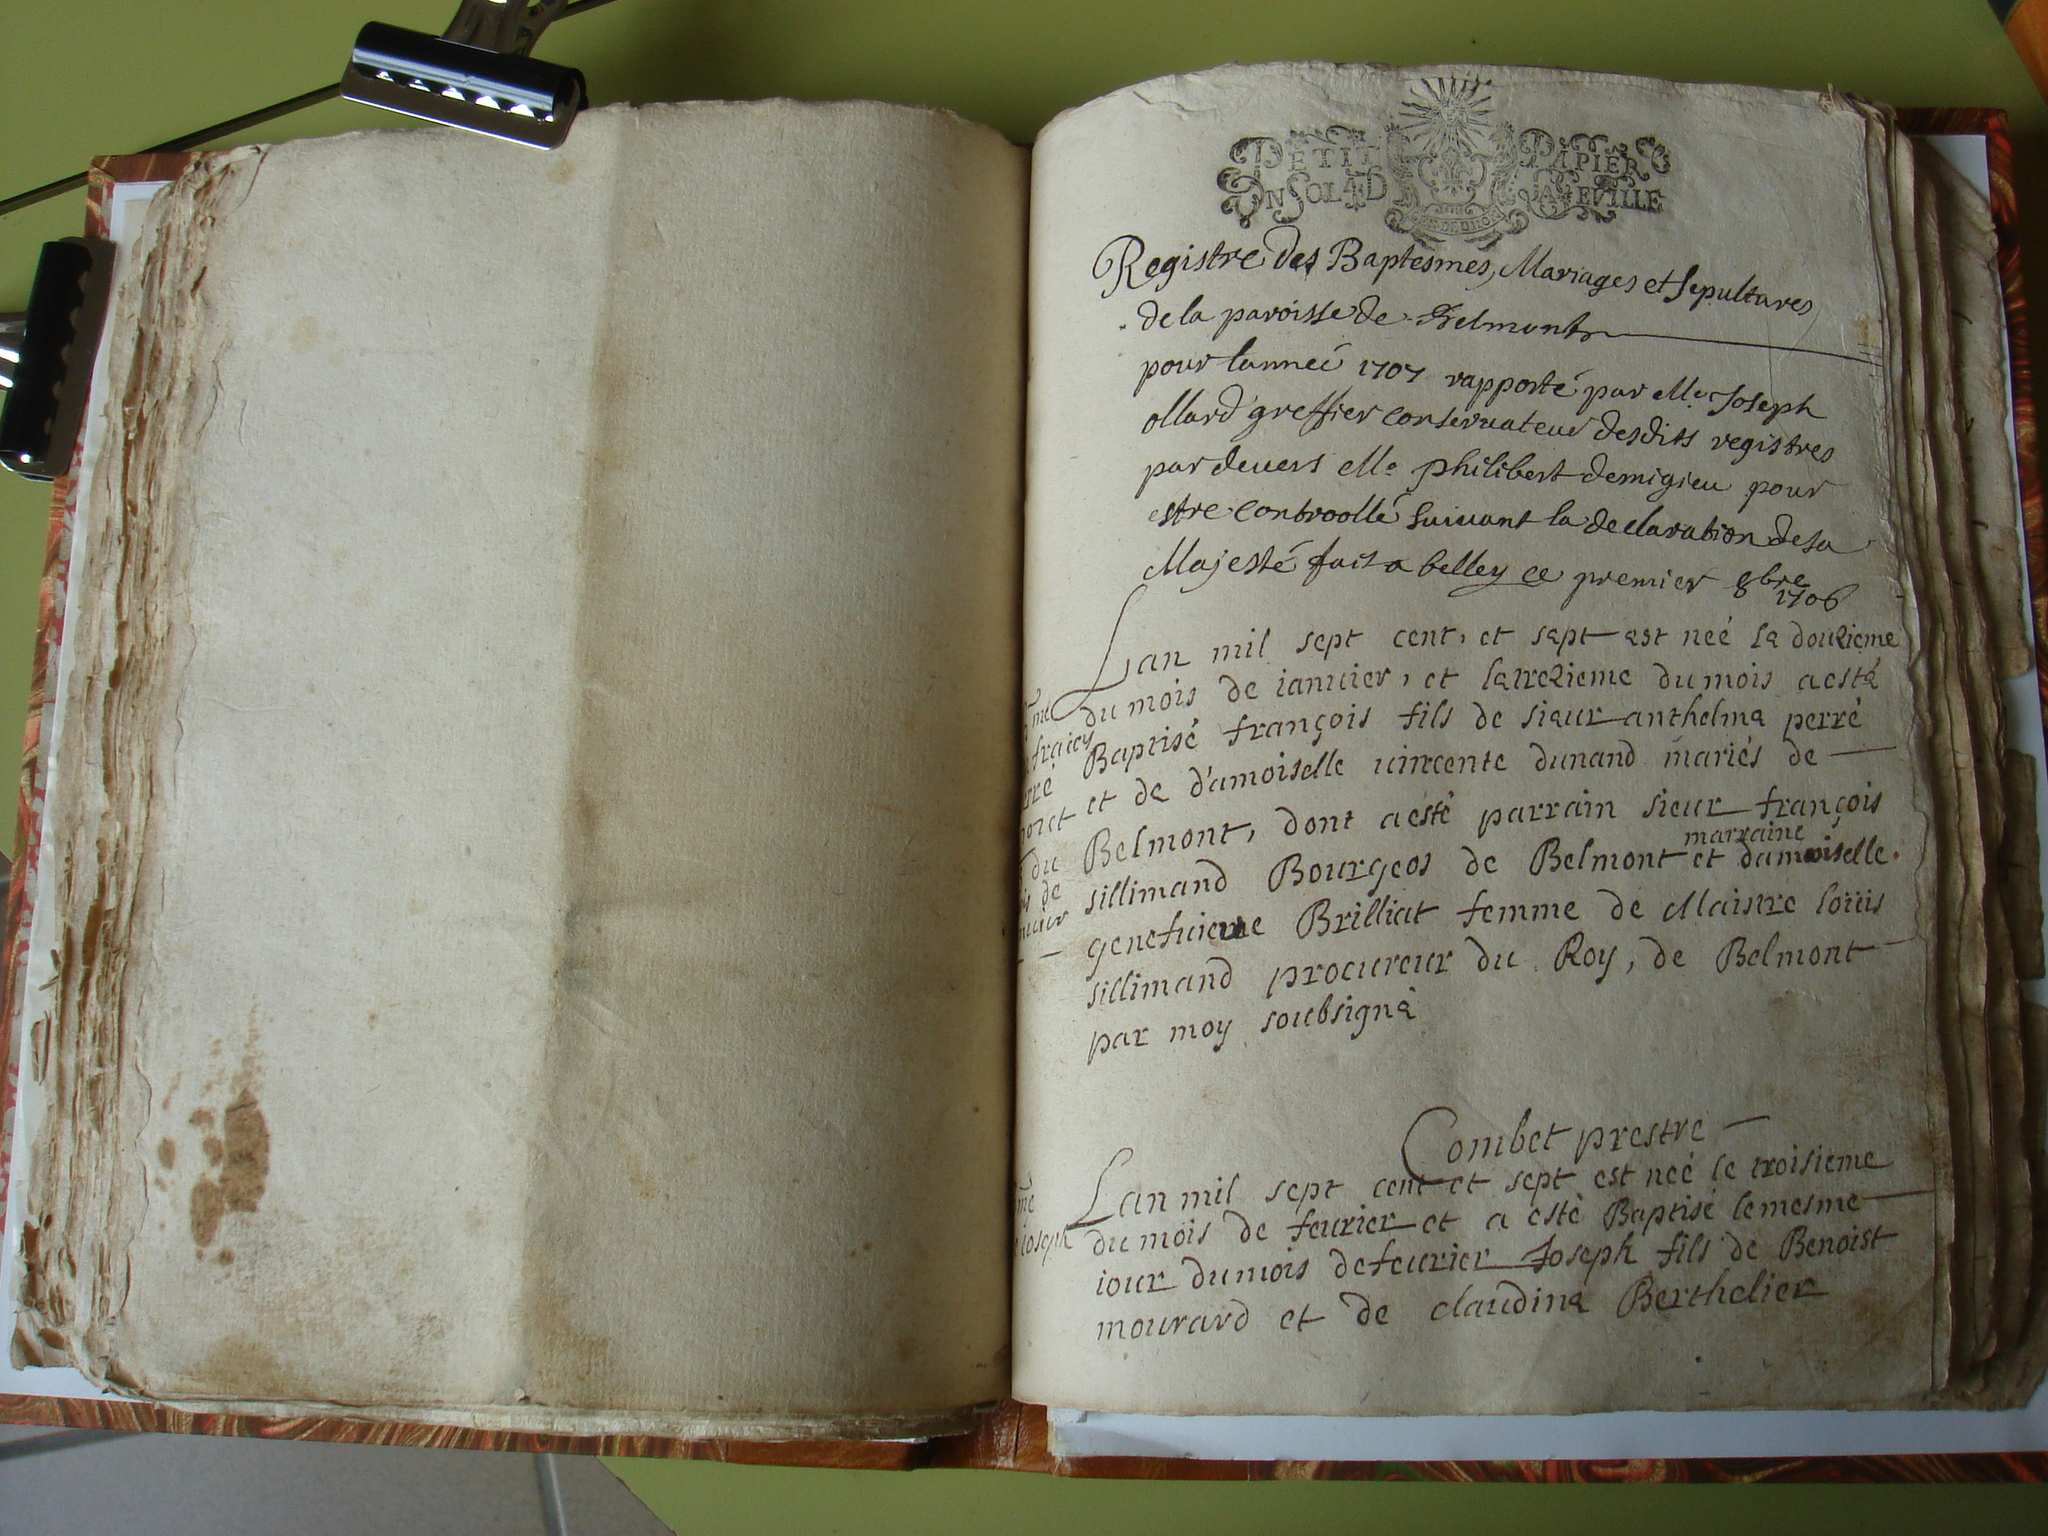 PETIT PAPIER
UN SOL 4 D LA FEUILLE
Registre des Baptesmes, Mariages et sepultures
de la paroisse de Belmont
pour lanneé 1707 rapporté par Me Joseph
ollard greffier conseruateur desdits registres
par deuers Me philibert demigieu pour
estre controollé suiuant la declaration de sa
Majesté fait a belley ce premier 8bre
1706
Lan mil sept cent, et sept est neé le douzieme
du mois de ianuier, et le treizieme du mois a esté
Baptisé françois fils de sieur anthelme perré
et de d'amoiselle uincente dunand mariés de
Belmont, dont a esté parrain sieur françois
marraine
sillimand Bourgeos de Belmont et damoiselle
genefuieue Brilliat femme de Maistre loüis
sillimand procureur du Roy, de Belmont
par moy soubsigné
Combet prestre
Lan mil sept cent et sept est neé le troisieme
du mois de feurier et a esté Baptisé le mesme
ioseph
iour du mois de feurier Joseph fils de Benoist
mourard et de claudine Berthelier